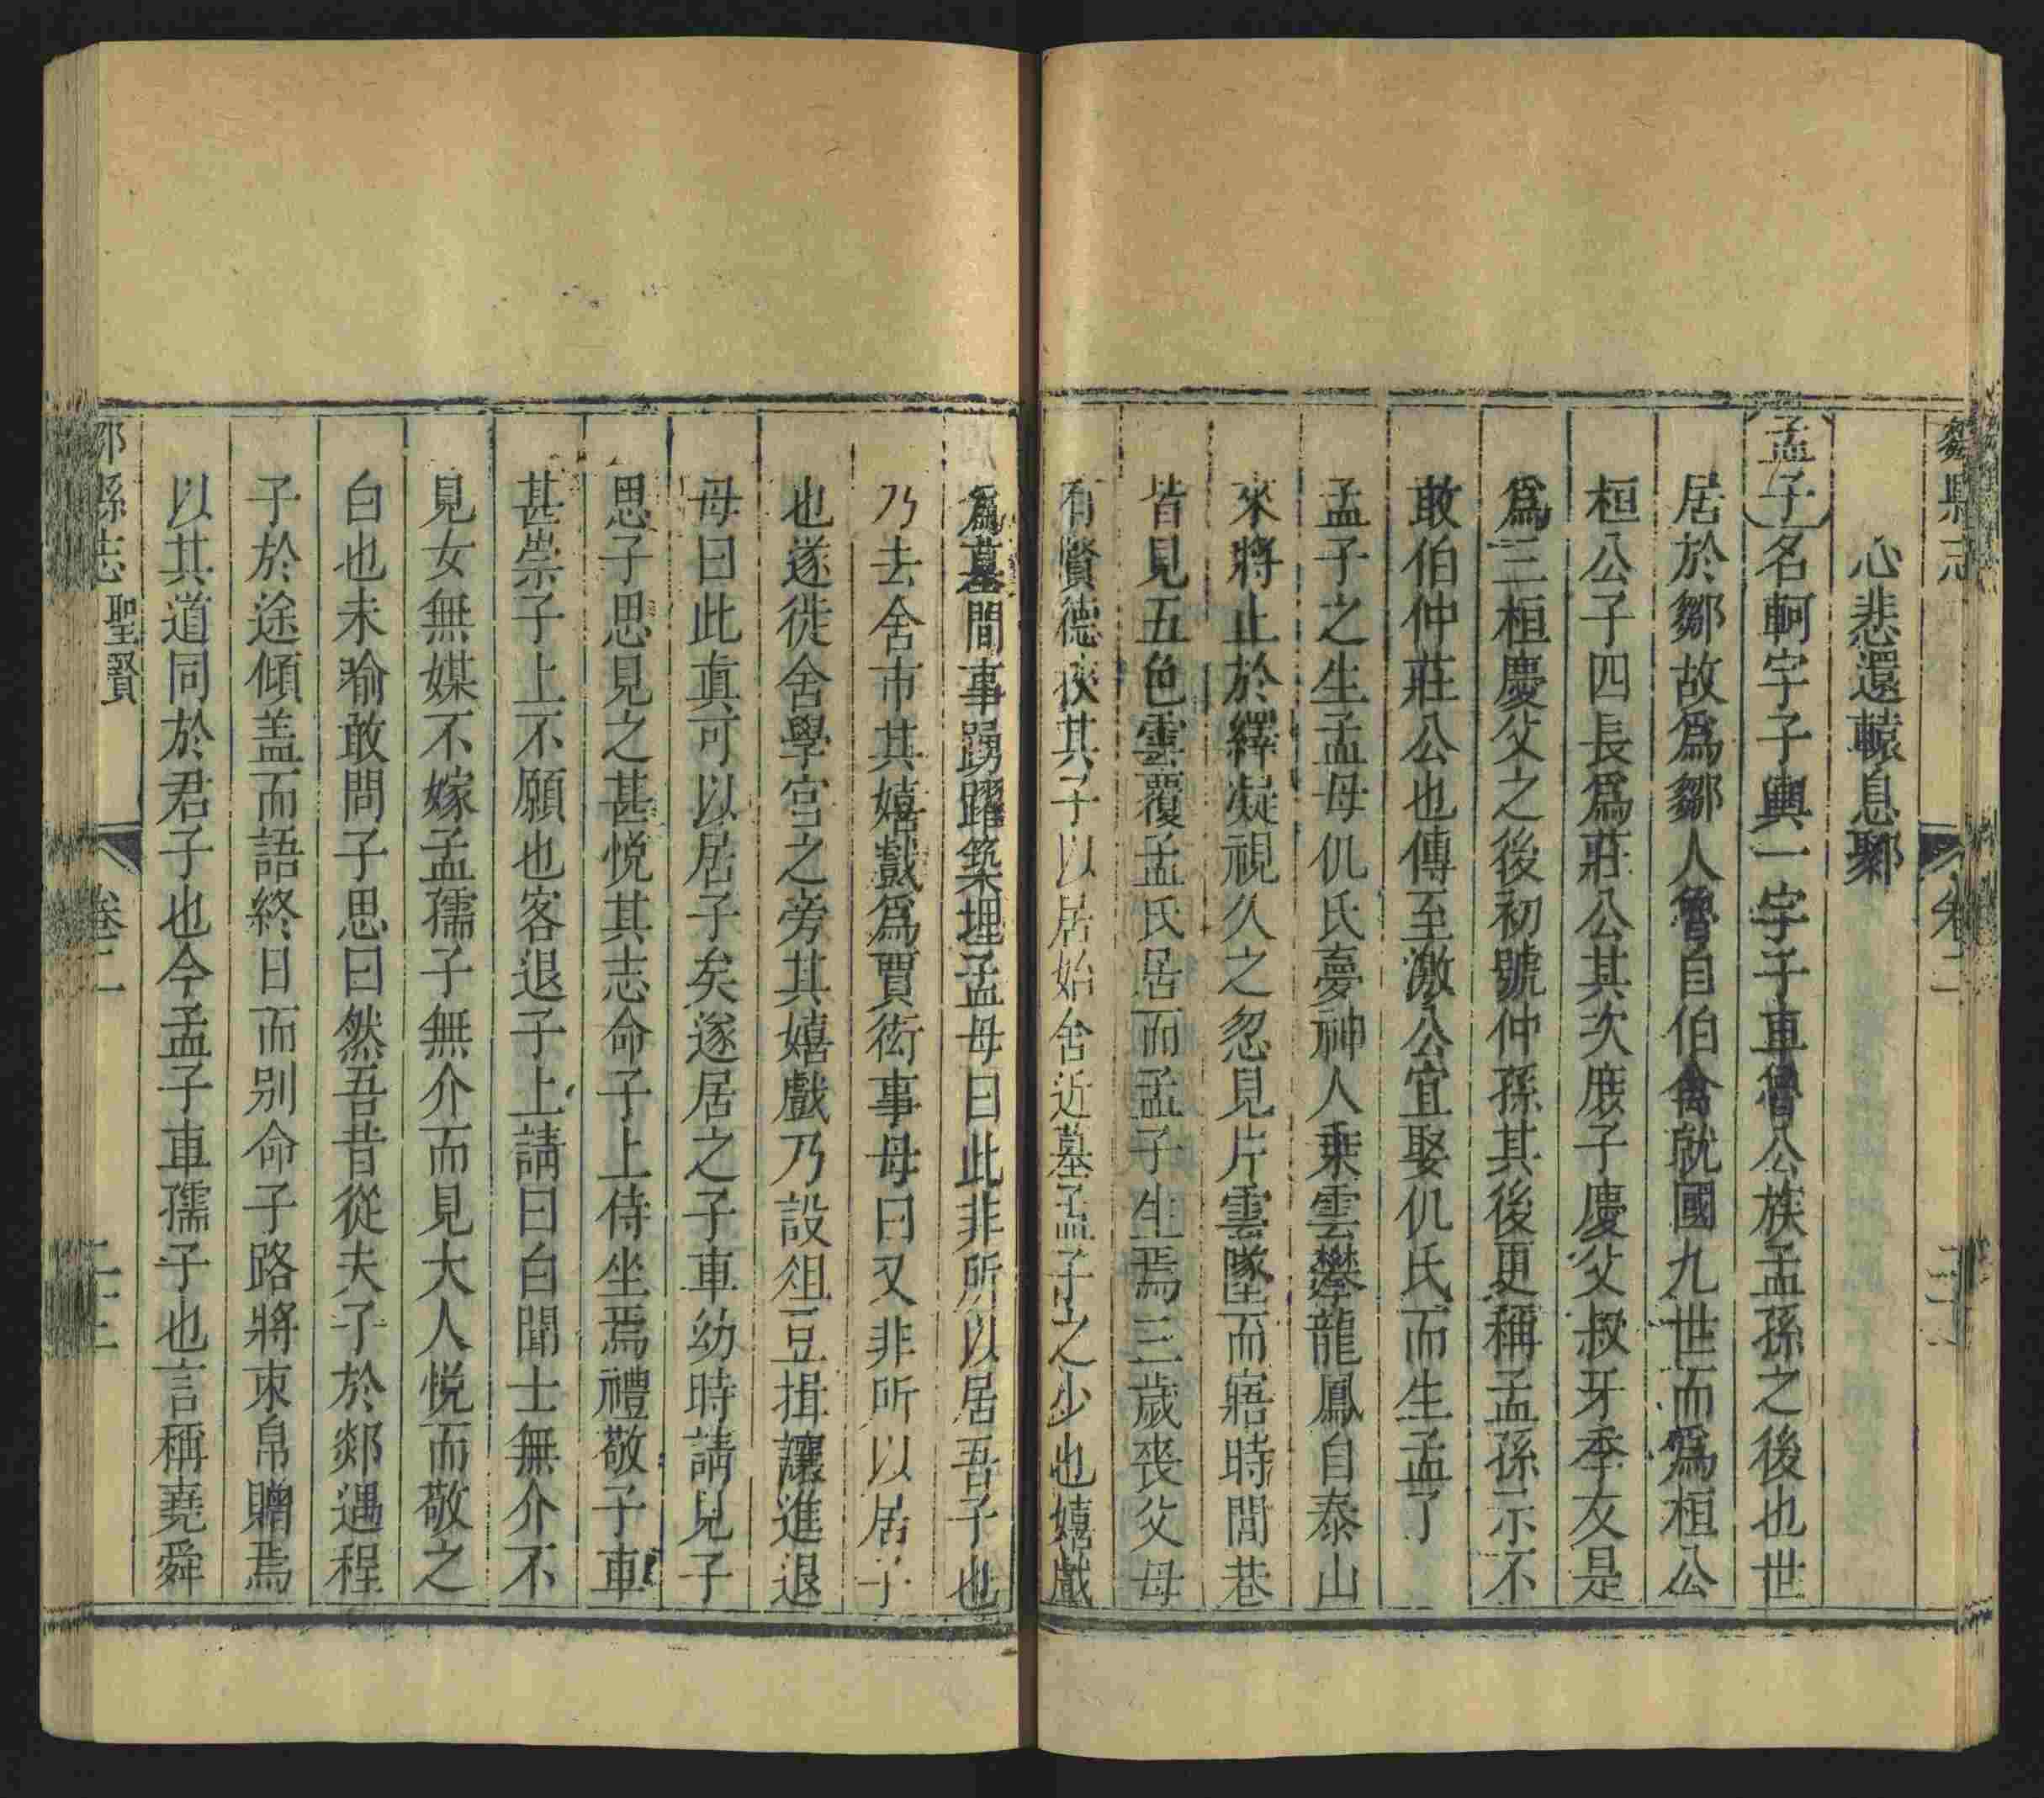 鄒縣志
卷二
心悲還轅息鄹
孟子名軻字子輿一字子車魯公族孟孫之後也世
居於鄒故爲鄒人魯自伯禽就國九世而爲桓公
桓公子四長爲莊公其次庶子慶父叔牙季友是
爲三桓慶父之後初號仲孫其後更稱孟孫示不
敢伯仲莊公也傳至激公宜娶仉氏而生孟子
孟子之生孟母仉氏夢神人乗雲攀龍鳳自泰山
來將止於繹凝視久之忽見片雲墜而寤時閭巷
皆見五色雲覆孟氏居而孟子生焉三歲喪父母
有賢德挾其子以居始舍近墓孟子之少也嬉戲
爲墓間事踴躍築埋孟母曰此非所以居吾子也
乃去舍市其嬉戲爲賈衒事母曰又非所以居子
也遂徙舍學宮之旁其嬉戲乃設俎豆揖讓進退
母曰此真可以居子矣遂居之子車幼時請見子
思子思見之甚悅其志命子上侍坐焉禮敬子車
甚崇子上不願也客退子上請曰白聞士無介不
見女無媒不嫁孟孺子無介而見大人悅而敬之
白也未喻敢問子思曰然吾昔從夫子於郯遇程
子於途傾盖而語終日而别命子路將束帛贈焉
以其道同於君子也今孟子車孺子也言稱堯舜
鄒縣志 聖賢
卷二